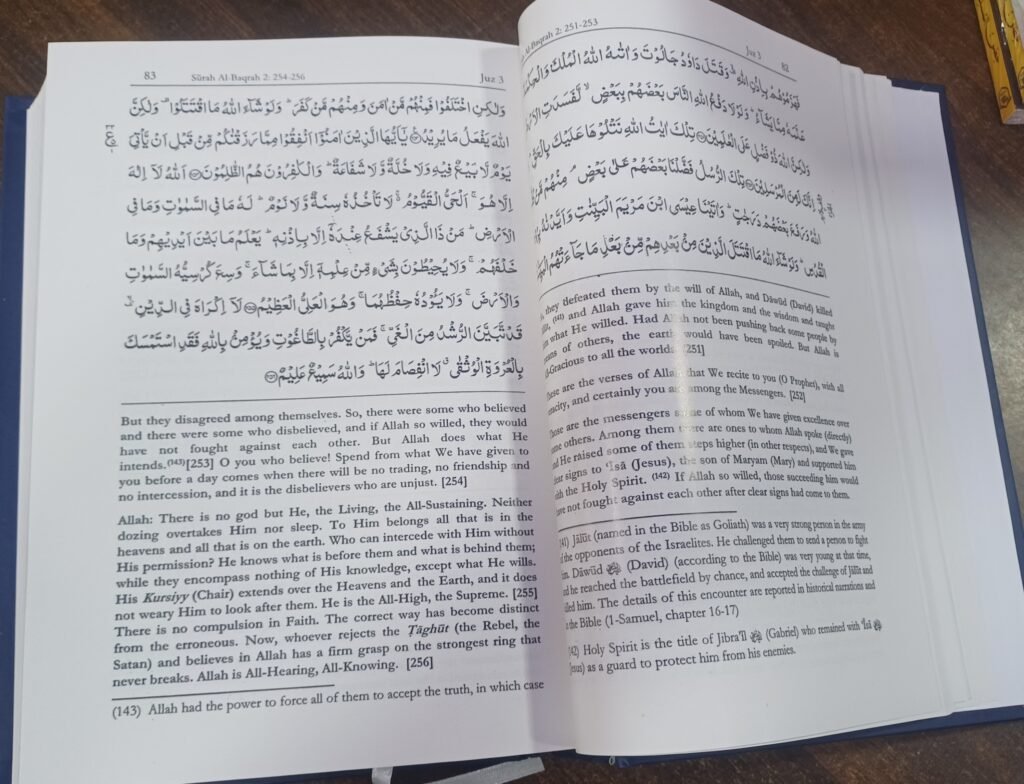 Al-Baqrah 2: 251-253 Juz 3 82
فَهَزَمُوْهُمْ بِاِذْنِ اللّٰهِ ۙ وَقَتَلَ دَاوٗدُ جَالُوْتَ وَاٰتٰىهُ اللّٰهُ الْمُلْكَ
عَلَّمَهٗ مِمَّا يَشَآءُ ؕ وَلَوْلَا دَفْعُ اللّٰهِ النَّاسَ بَعْضَهُمْ بِبَعْضٍ ۙ لَّفَسَدَتِ
وَلٰكِنَّ اللّٰهَ ذُوْ فَضْلٍ عَلَى الْعٰلَمِيْنَ ۝ تِلْكَ اٰيٰتُ اللّٰهِ نَتْلُوْهَا عَلَيْكَ بِالْحَقِّ
اِنَّكَ لَمِنَ الْمُرْسَلِيْنَ ۝ تِلْكَ الرُّسُلُ فَضَّلْنَا بَعْضَهُمْ عَلٰى بَعْضٍ ۘ مِنْهُمْ مَّنْ
اللّٰهُ وَرَفَعَ بَعْضَهُمْ دَرَجٰتٍ ؕ وَاٰتَيْنَا عِيْسَى ابْنَ مَرْيَمَ الْبَيِّنٰتِ وَاَيَّدْنٰهُ
الْقُدُسِ ؕ وَلَوْ شَآءَ اللّٰهُ مَا اقْتَتَلَ الَّذِيْنَ مِنْۢ بَعْدِهِمْ مِّنْۢ بَعْدِ مَا جَآءَتْهُمُ
they defeated them by the will of Allah, and Dāwūd (David) killed
(141) and Allah gave him the kingdom and the wisdom and taught
what He willed. Had Allah not been pushing back some people by
of others, the earth would have been spoiled. But Allah is
-Gracious to all the worlds. [251]
are the verses of Allah that We recite to you (O Prophet), with all
and certainly you are among the Messengers. [252]
are the messengers some of whom We have given excellence over
others. Among them there are ones to whom Allah spoke (directly)
He raised some of them steps higher (in other respects), and We gave
signs to ‘Īsā (Jesus), the son of Maryam (Mary) and supported him
the Holy Spirit. (142) If Allah so willed, those succeeding him would
not fought against each other after clear signs had come to them.
41) Jālūt (named in the Bible as Goliath) was a very strong person in the army
of the opponents of the Israelites. He challenged them to send a person to fight
Dāwūd (David) (according to the Bible) was very young at that time,
he reached the battlefield by chance, and accepted the challenge of Jālūt and
him. The details of this encounter are reported in historical narrations and
the Bible (1-Samuel, chapter 16-17)
42) Holy Spirit is the title of Jibra’īl (Gabriel) who remained with ‘Īsā
as a guard to protect him from his enemies.
83 Sūrah Al-Baqrah 2: 254-256 Juz 3
وَلٰكِنِ اخْتَلَفُوْا فَمِنْهُمْ مَّنْ اٰمَنَ وَمِنْهُمْ مَّنْ كَفَرَ ؕ وَلَوْ شَآءَ اللّٰهُ مَا اقْتَتَلُوْا ۟ وَلٰكِنَّ
اللّٰهَ يَفْعَلُ مَا يُرِيْدُ ۝ يٰۤاَيُّهَا الَّذِيْنَ اٰمَنُوْۤا اَنْفِقُوْا مِمَّا رَزَقْنٰكُمْ مِّنْ قَبْلِ اَنْ يَّاْتِيَ
يَوْمٌ لَّا بَيْعٌ فِيْهِ وَلَا خُلَّةٌ وَّلَا شَفَاعَةٌ ؕ وَالْكٰفِرُوْنَ هُمُ الظّٰلِمُوْنَ ۝ اَللّٰهُ لَاۤ اِلٰهَ
اِلَّا هُوَ ۚ اَلْحَيُّ الْقَيُّوْمُ ۚ لَا تَاْخُذُهٗ سِنَةٌ وَّلَا نَوْمٌ ؕ لَهٗ مَا فِي السَّمٰوٰتِ وَمَا فِي
الْاَرْضِ ؕ مَنْ ذَا الَّذِيْ يَشْفَعُ عِنْدَهٗۤ اِلَّا بِاِذْنِهٖ ؕ يَعْلَمُ مَا بَيْنَ اَيْدِيْهِمْ وَمَا
خَلْفَهُمْ ۚ وَلَا يُحِيْطُوْنَ بِشَيْءٍ مِّنْ عِلْمِهٖۤ اِلَّا بِمَا شَآءَ ۚ وَسِعَ كُرْسِيُّهُ السَّمٰوٰتِ
وَالْاَرْضَ ۚ وَلَا يَـُٔوْدُهٗ حِفْظُهُمَا ۚ وَهُوَ الْعَلِيُّ الْعَظِيْمُ ۝ لَاۤ اِكْرَاهَ فِي الدِّيْنِ ۙ
قَدْ تَّبَيَّنَ الرُّشْدُ مِنَ الْغَيِّ ۚ فَمَنْ يَّكْفُرْ بِالطَّاغُوْتِ وَيُؤْمِنْۢ بِاللّٰهِ فَقَدِ اسْتَمْسَكَ
بِالْعُرْوَةِ الْوُثْقٰى ۗ لَا انْفِصَامَ لَهَا ؕ وَاللّٰهُ سَمِيْعٌ عَلِيْمٌ ۝
But they disagreed among themselves. So, there were some who believed
and there were some who disbelieved, and if Allah so willed, they would
have not fought against each other. But Allah does what He
intends.(143)[253] O you who believe! Spend from what We have given to
you before a day comes when there will be no trading, no friendship and
no intercession, and it is the disbelievers who are unjust. [254]
Allah: There is no god but He, the Living, the All-Sustaining. Neither
dozing overtakes Him nor sleep. To Him belongs all that is in the
heavens and all that is on the earth. Who can intercede with Him without
His permission? He knows what is before them and what is behind them;
while they encompass nothing of His knowledge, except what He wills.
His Kursiyy (Chair) extends over the Heavens and the Earth, and it does
not weary Him to look after them. He is the All-High, the Supreme. [255]
There is no compulsion in Faith. The correct way has become distinct
from the erroneous. Now, whoever rejects the Ṭāghūt (the Rebel, the
Satan) and believes in Allah has a firm grasp on the strongest ring that
never breaks. Allah is All-Hearing, All-Knowing. [256]
(143) Allah had the power to force all of them to accept the truth, in which case